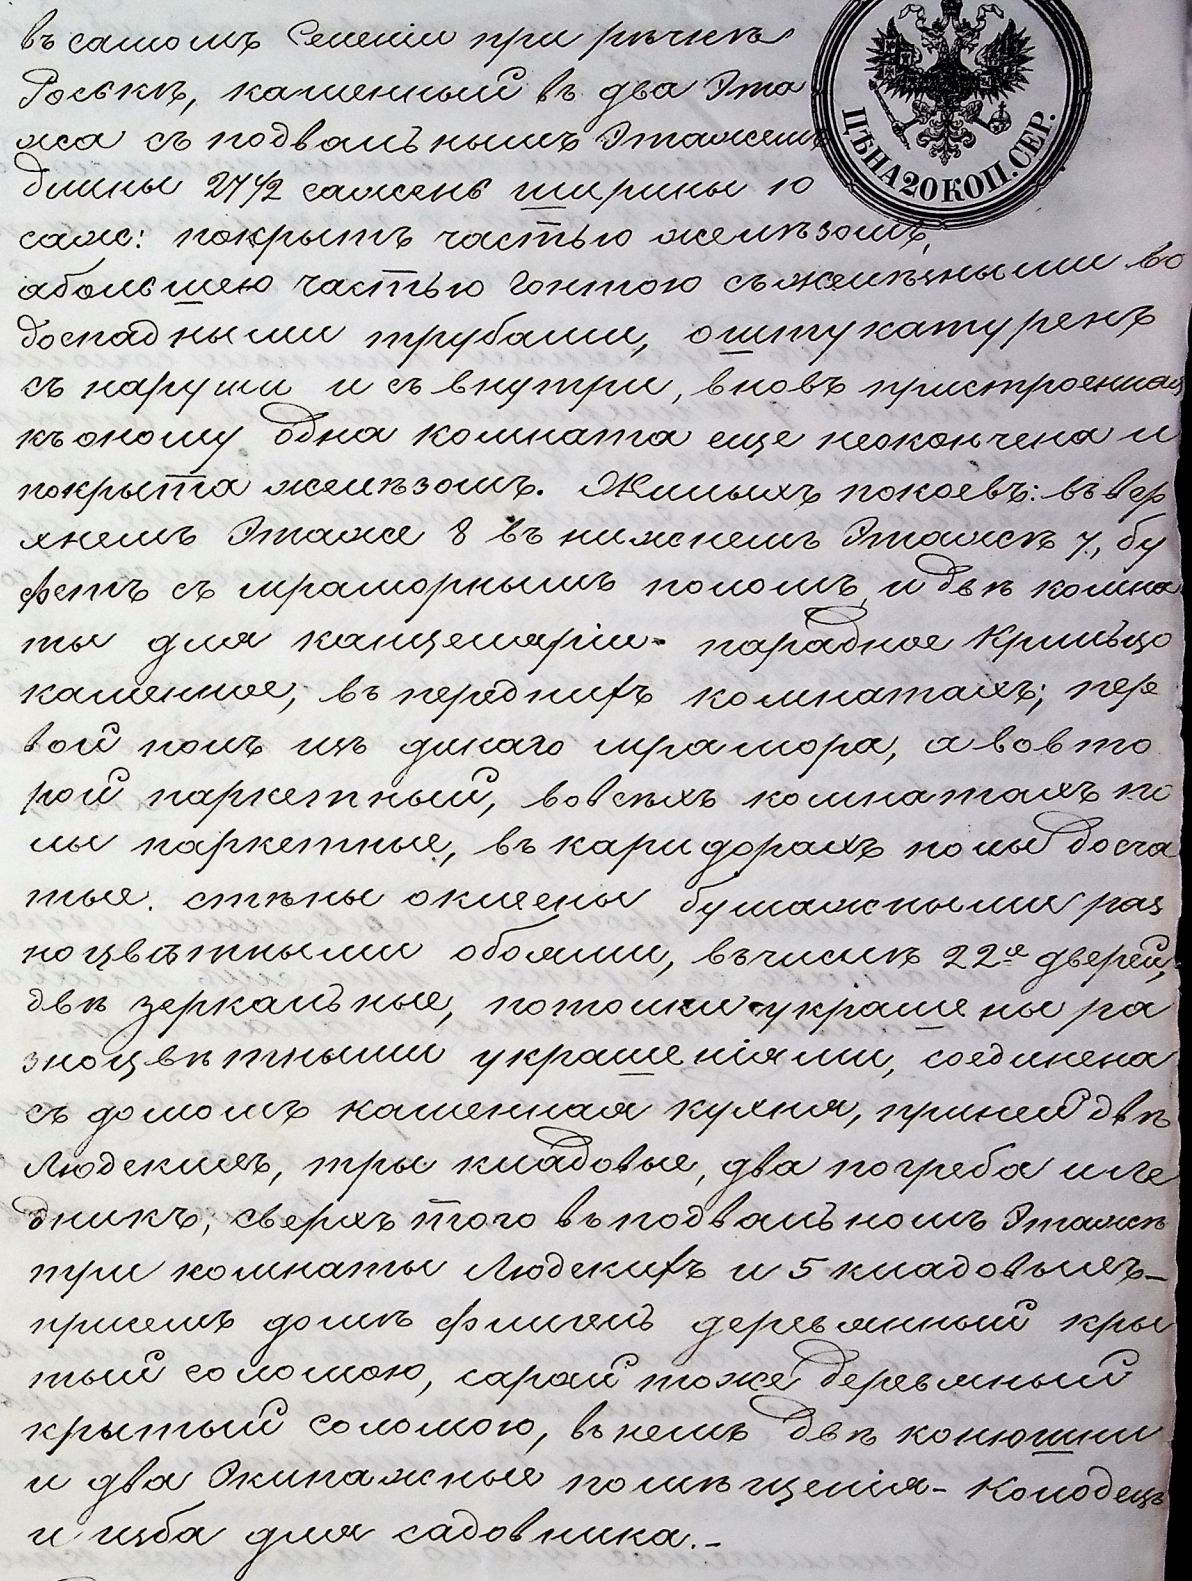 въ самомъ Селеніи при рѣчкѣ
Роськѣ, каменный въ два Эта
жа съ подвальнымъ Этажемъ
длины 27 1/2 сажень ширины 10
саж: покрытъ частью желѣзомъ,
абольшею частью Гонтою съжелѣзными во
доспадными трубами, оштукатуренъ
съ наружи и съ внутри, вновь пристроенная
къ оному одна комната еще неокончена и
покрыта желѣзомъ. Жилыхъ покоевъ: въ вер
хнемъ Этаже 8 въ нижнемъ Этажѣ 7, бу
фетъ съ мраморнымъ поломъ, и двѣ комна
ты для канцеляріи - парадное Крильцо
каменное, въ переднихъ комнатахъ; пер
вой полъ изъ дикаго мрамора, а вовто
рой паркетный, вовсѣхъ комнатахъ по
лы паркетные, въ каридорахъ полы досча
тые. стѣны оклеены бумажными раз
ноцвѣтными обоями, въчислѣ 22хъ дверей,
двѣ зеркальные, потолки украшены ра
зноцвѣтными украшеніями, соединена
съ домомъ каменная кухня, приней двѣ
Людскихъ, три кладовые, два погреба и ле
дникъ, сверхъ того въ подвальномъ Этажѣ
три комнаты Людскихъ и 5 кладовыхъ -
присемъ домѣ флигель деревянный кры
тый соломою, сарай тоже деревяный
крытый соломою, въ немъ двѣ конюшни
и два Экипажные помѣщенія - Колодецъ
и изба для садовника. -
ЦѢНА 20 КОП. СЕР.